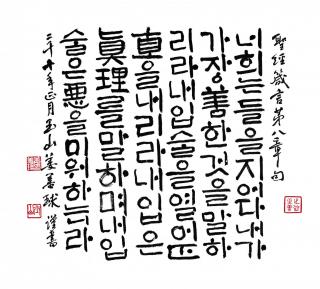 聖經箴言第八章句
너희는들을지어다내가
가장善한것을말하
리라내입술을열어正
直을내리라내입은
眞理를말하며내입
술은惡을미워하느니라
二千十年正月玉山姜善球謹書